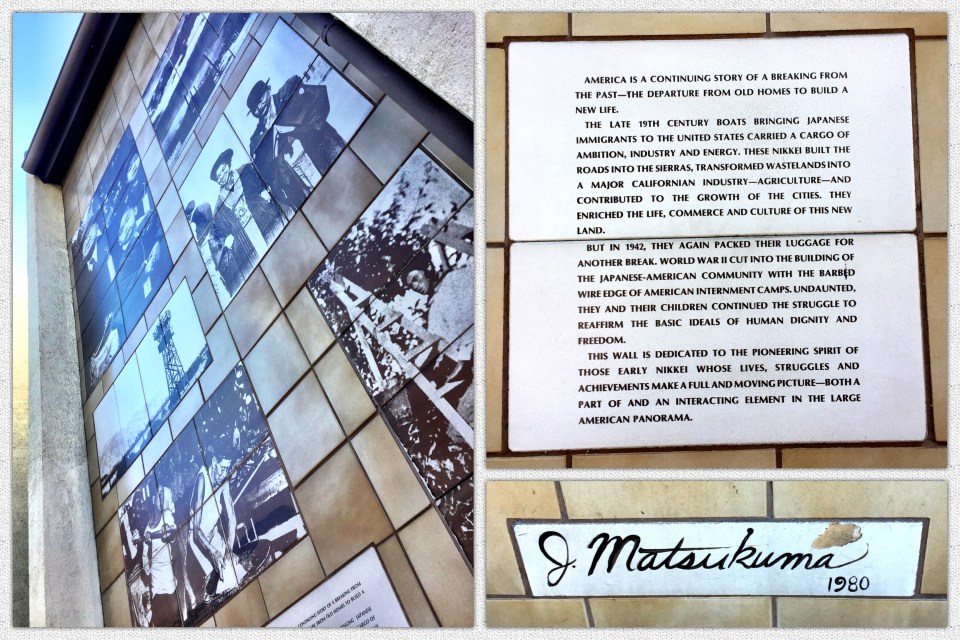 AMERICA IS A CONTINUING STORY OF A BREAKING FROM
THE PAST—THE DEPARTURE FROM OLD HOMES TO BUILD A
NEW LIFE.
THE LATE 19TH CENTURY BOATS BRINGING JAPANESE
IMMIGRANTS TO THE UNITED STATES CARRIED A CARGO OF
AMBITION, INDUSTRY AND ENERGY. THESE NIKKEI BUILT THE
ROADS INTO THE SIERRAS, TRANSFORMED WASTELANDS INTO
A MAJOR CALIFORNIAN INDUSTRY—AGRICULTURE—AND
CONTRIBUTED TO THE GROWTH OF THE CITIES. THEY
ENRICHED THE LIFE, COMMERCE AND CULTURE OF THIS NEW
LAND.
BUT IN 1942, THEY AGAIN PACKED THEIR LUGGAGE FOR
ANOTHER BREAK. WORLD WAR II CUT INTO THE BUILDING OF
THE JAPANESE-AMERICAN COMMUNITY WITH THE BARBED
WIRE EDGE OF AMERICAN INTERNMENT CAMPS. UNDAUNTED,
THEY AND THEIR CHILDREN CONTINUED THE STRUGGLE TO
REAFFIRM THE BASIC IDEALS OF HUMAN DIGNITY AND
FREEDOM.
THIS WALL IS DEDICATED TO THE PIONEERING SPIRIT OF
THOSE EARLY NIKKEI WHOSE LIVES, STRUGGLES AND
ACHIEVEMENTS MAKE A FULL AND MOVING PICTURE—BOTH A
PART OF AND AN INTERACTING ELEMENT IN THE LARGE
AMERICAN PANORAMA.
J. Matsukuma
1980